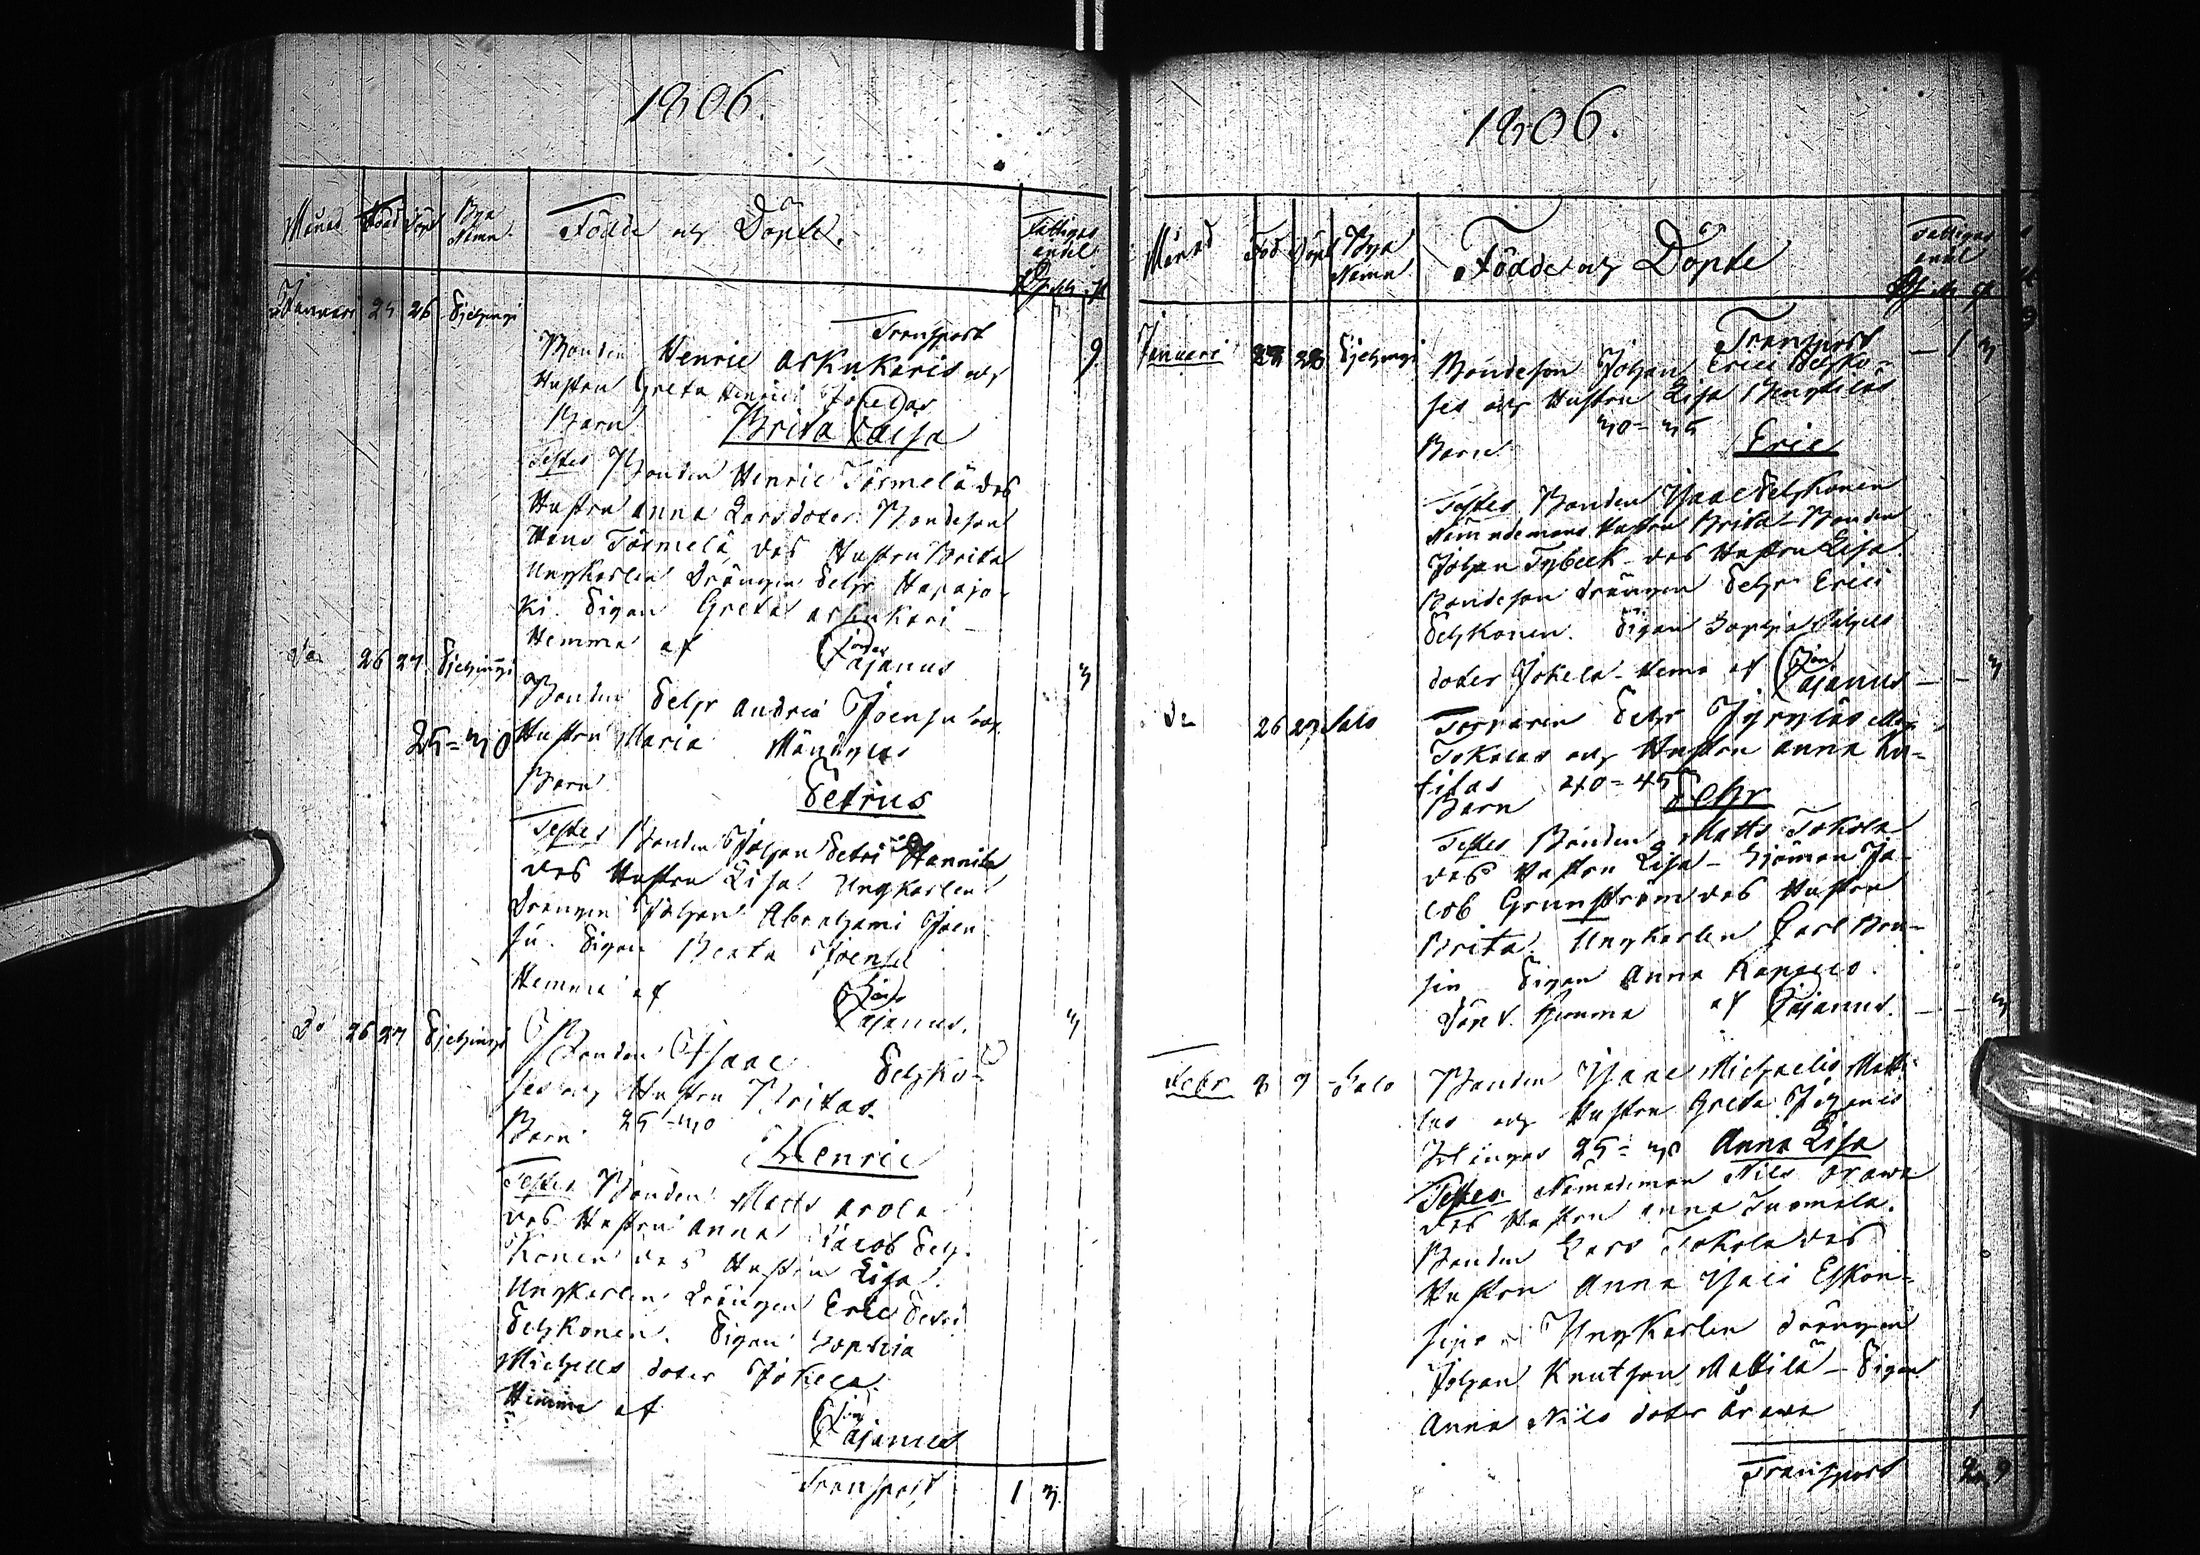 1806.
Månad Född Döpt Bya Namn Födde och Döpte. Fattigas andel
Januari 25 26 Pjehingi
Transport 9
Bonden Henric Askukaris och
Hustru Greta Henrici Jokelas
Barn Brita Caisa
Testes Bonden Henric Törmelä des
Hustru Anna Larsdoter. Bondeson
Hans Törmelä, des Hustru Brita
Ungkarlen Drängen Pehr Hapajo-
ki. Pigan Greta Askukari
Hemma af Cajanus
Do 26 27 Pjehingi 3
Bonden Pehr Andreæ Joensu och
25=30 Hustru Maria
Barn Petrus
Testes Bonden Johan Petri Hannila
des Hustru Lisa. Ungkarlen
Drängen Johan Abrahami Joen
su. Pigan Beata Joensu
Hemma af Cajanus. 3
Do 26 27 Pjehingi
Bonden Isaac Pehko-
ses och Hustru Britas.
Barn 25-30
Henric
Testes Bonden Matts Arola
des Hustru Anna Jacob Peh-
konen des Hustru Lisa.
Ungkarlen Drängen Eric Petri
Pehkonen. Pigan Sophia
Michells doter Jokela
Hemma af Cajanus
Transport 1 3.
1806.
Månad Föd Döpt Bya Namn Födde och Döpte Fattigas andel
Transport - 1 3
Januari 27 28 Pjehingi
Bondeson Johan Erici Pehko-
ses och Hustru Lisa Bengtilas
30=35
Barn Eric
Testes Bonden Isaac Pehkonen
Nämndemans Hustru Brita - Bonden
Johan Tybeck des Hustru Lisa
Bondeson Drängen Pehr Erici
Pehkonen. Pigan Sophia Michels
doter Jokela - Hema af Cajanus - - 3
Do 26 27 Salo
Torparen Pehr
Tokolas och Hustru Anna
40=45
Barn Pehr
Testes Bonden Matts Tokola
des Hustru Lisa - Sjöman Ja-
cob Grunström des Hustru
Brita. Ungkarlen Carl Bon-
Pigan Anna
Döpt Hemma af Cajanus. - - 3
Febr 8 9 Salo
Bonden Isaac Michaelis Matti-
las och Hustru Greta
25=30 Anna Lisa
Testes Nämndeman Nils Orawa
des Hustru Anna Tuomala.
Bonden Lars Tokola des
Hustru Anna Isaci
Ungkarlen drängen
Johan Knutson Mattila - Pigan
Anna Nils doter Orawa 1
Transport 9